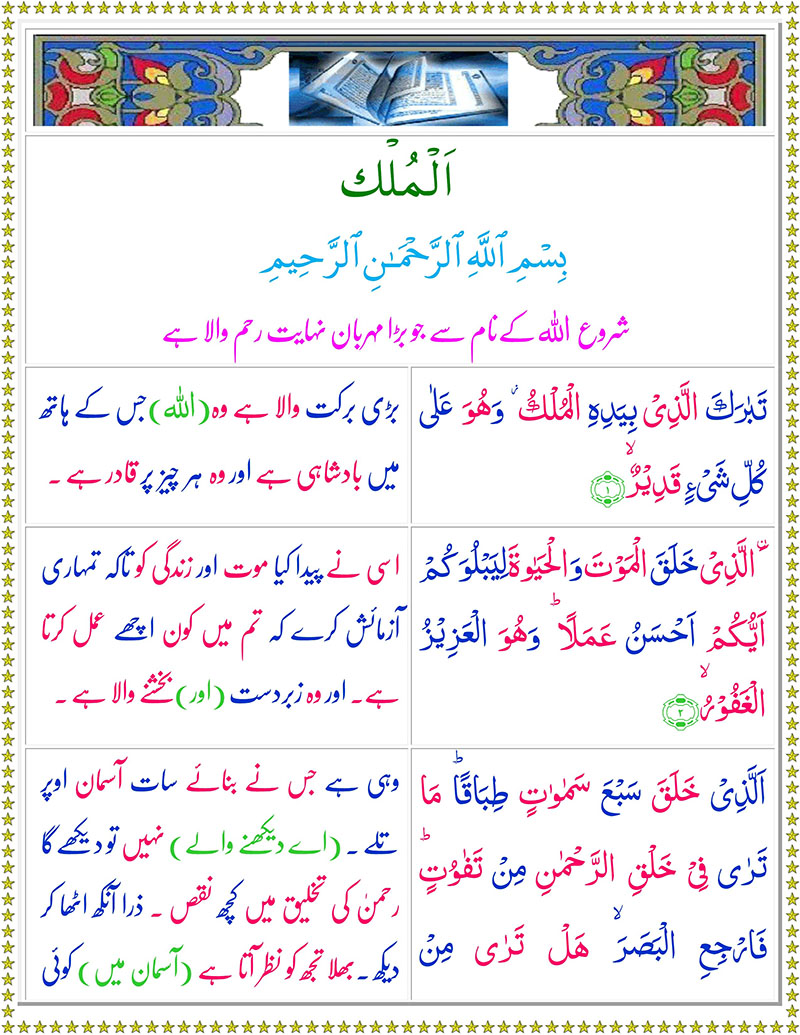 اَلْمُلْك
بِسْمِ ٱللَّهِ ٱلرَّحْمَـٰنِ ٱلرَّحِيمِ
شروع اللہ کے نام سے جو بڑا مہربان نہایت رحم والا ہے
تَبٰرَكَ الَّذِیْ بِیَدِهِ الْمُلْكُ٘ وَهُوَ عَلٰی
كُلِّ شَیْءٍ قَدِیْرُۙ ﴿۱﴾
بڑی برکت والا ہے وہ (اللہ) جس کے ہاتھ
میں بادشاہی ہے اور وہ ہر چیز پر قادر ہے ۔
ﰳالَّذِیْ خَلَقَ الْمَوْتَ وَالْحَیٰوةَ لِیَبْلُوَكُمْ
اَیُّكُمْ اَحْسَنُ عَمَلًا ؕ وَهُوَ الْعَزِیْزُ
الْغَفُوْرُۙ ﴿۲﴾
اسی نے پیدا کیا موت اور زندگی کو تاکہ تمہاری
آزمائش کرے کہ تم میں کون اچھے عمل کرتا
ہے۔ اور وہ زبردست (اور) بخشنے والا ہے ۔
الَّذِیْ خَلَقَ سَبْعَ سَمٰوٰتٍ طِبَاقًا ؕ مَا
تَرٰی فِیْ خَلْقِ الرَّحْمٰنِ مِنْ تَفٰوُتٍ ؕ
فَارْجِعِ الْبَصَرَ ۙ هَلْ تَرٰی مِنْ
وہی ہے جس نے بنائے سات آسمان اوپر
تلے ۔ (اے دیکھنے والے) نہیں تو دیکھے گا
رحمٰن کی تخلیق میں کچھ نقص ۔ ذرا آنکھ اٹھا کر
دیکھ ۔ بھلا تجھ کو نظر آتا ہے (آسمان میں) کوئی